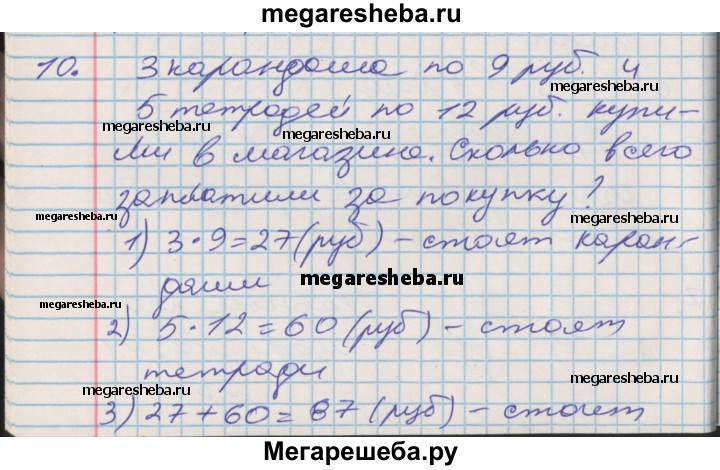 megaresheba.ru
10. 3 карандаша по 9 руб. и
5 тетрадей по 12 руб. купи-
megaresheba.ru megaresheba.ru megaresheba.ru
ли в магазине. Сколько всего
заплатили за покупку?
megaresheba.ru megaresheba.ru
1) 3·9=27(руб) – стоят каран-
даши
megaresheba.ru megaresheba.ru
2) 5·12=60(руб) – стоят
тетради
megaresheba.ru megaresheba.ru
3) 27+60=87(руб) – стоит
Мегарешеба.ру